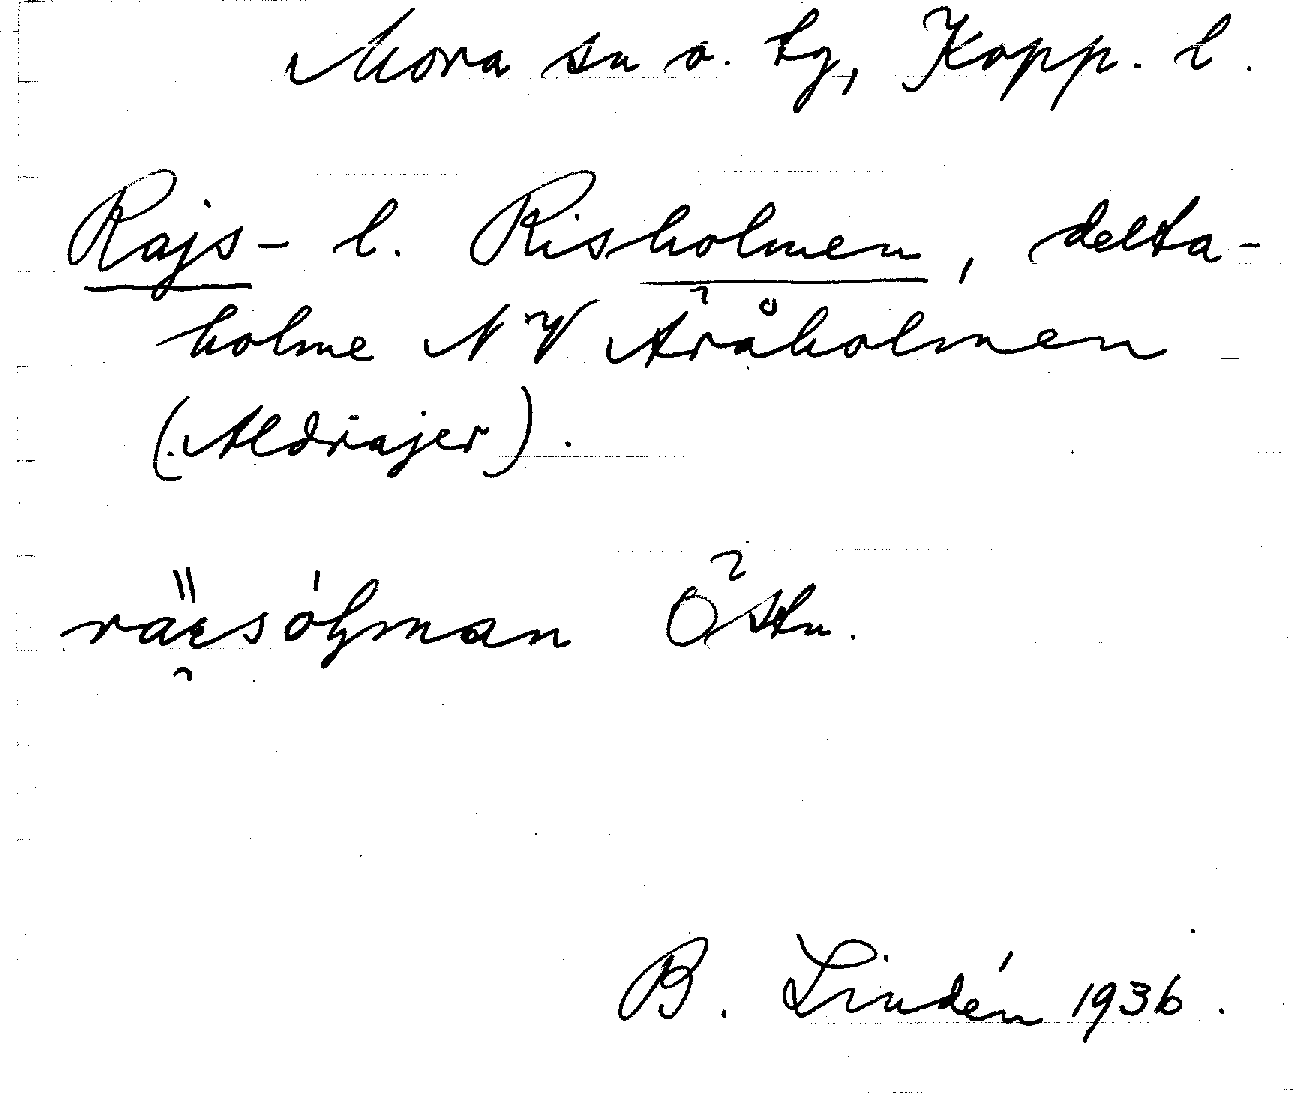 Mora sn o. tg, Kopp. l.
Rajs- l. Risholmen, delta-
holme NV Åråholmen
(Aldrajer).
Östn.
B. Lindén 1936.